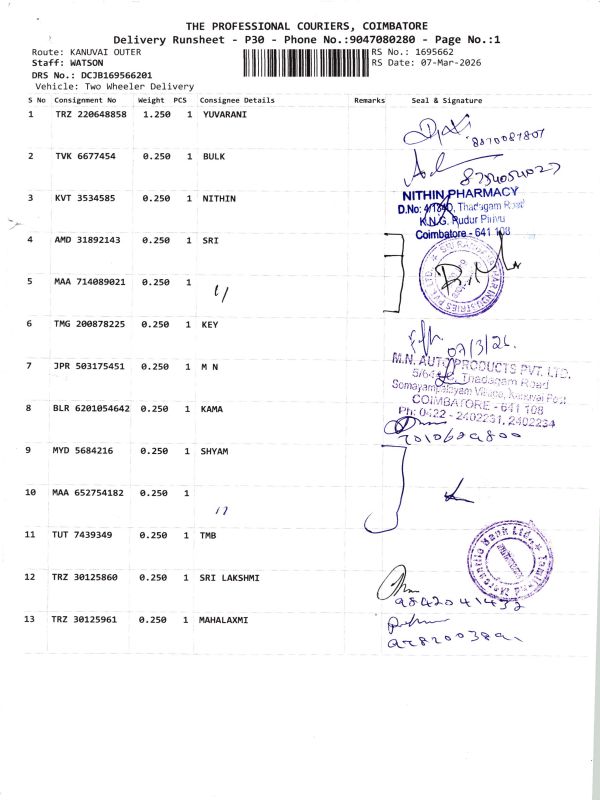 THE PROFESSIONAL COURIERS, COIMBATORE
Delivery Runsheet - P30 - Phone No.:9047080280 - Page No.:1
Route: KANUVAI OUTER
RS No.: 1695662
Staff: WATSON
RS Date: 07-Mar-2026
DRS No.: DCJB169566201
Vehicle: Two Wheeler Delivery
S No Consignment No Weight PCS Consignee Details Remarks Seal & Signature
1 TRZ 220648858 1.250 1 YUVARANI
8870087807
2 TVK 6677454 0.250 1 BULK
8754054027
3 KVT 3534585 0.250 1 NITHIN
NITHIN PHARMACY
D.No: 4/184D, Thadagam Road
K.N.G. Pudur Pirivu
Coimbatore - 641 108
4 AMD 31892143 0.250 1 SRI
5 MAA 714089021 0.250 1
6 TMG 200878225 0.250 1 KEY
07/3/26.
7 JPR 503175451 0.250 1 M N
M.N. AUTO PRODUCTS PVT. LTD.
Thadagam Road
Somayampalayam Village, Kanuvai Post
COIMBATORE - 641 108
Ph: 0422 - 2402231, 2402234
8 BLR 6201054642 0.250 1 KAMA
7010629800
9 MYD 5684216 0.250 1 SHYAM
10 MAA 652754182 0.250 1
11 TUT 7439349 0.250 1 TMB
Tamilnad Mercantile Bank Ltd.
12 TRZ 30125860 0.250 1 SRI LAKSHMI
9842041432
13 TRZ 30125961 0.250 1 MAHALAXMI